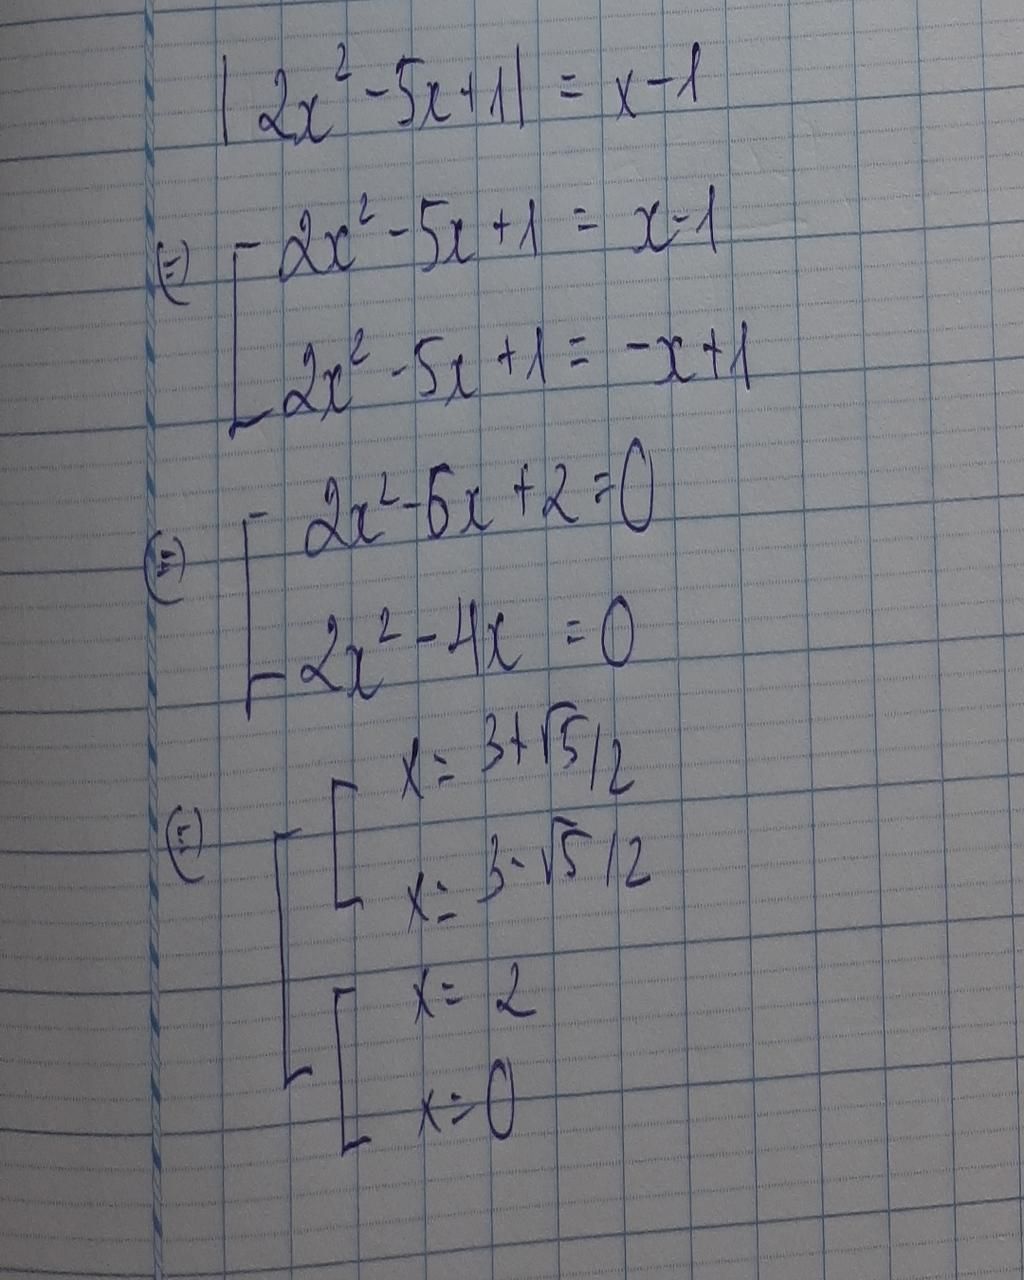 |2x² - 5x + 1| = x - 1
(=) [ 2x² - 5x + 1 = x - 1
2x² - 5x + 1 = -x + 1
(=) [ 2x² - 6x + 2 = 0
2x² - 4x = 0
(=) [ [ x = 3 + √5 / 2
x = 3 - √5 / 2
[ x = 2
x = 0